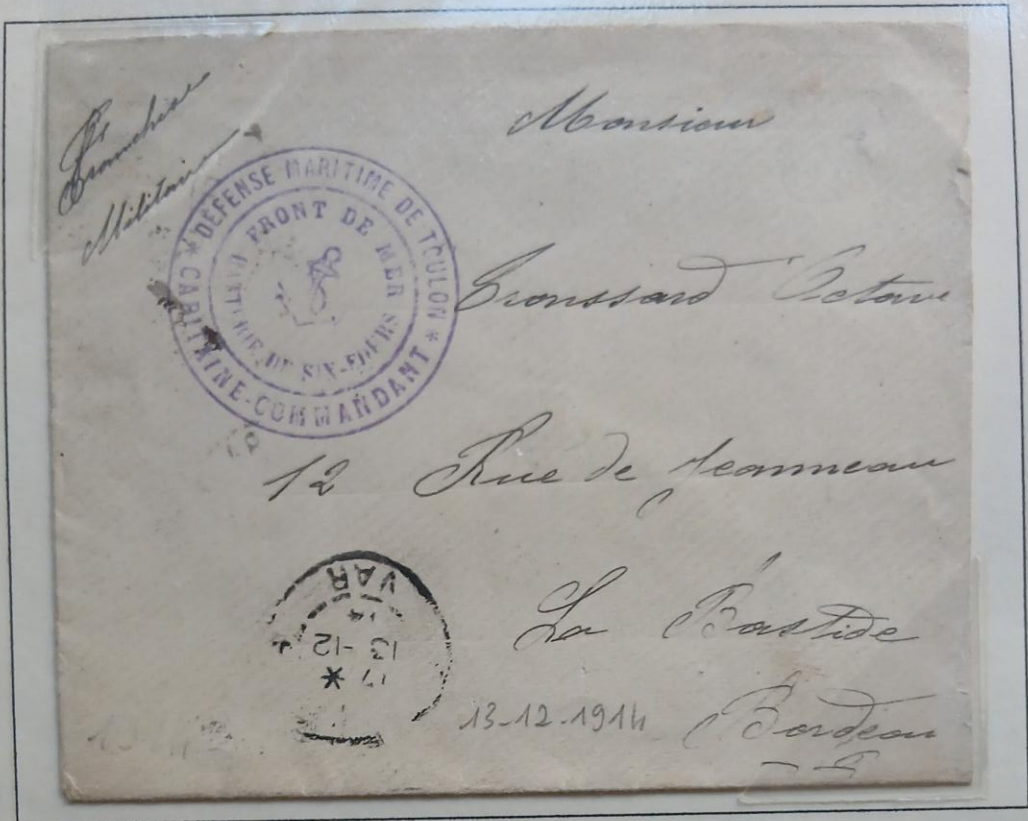 Franchise
Militaire
Monsieur
* DÉFENSE MARITIME DE TOULON *
CAPITAINE-COMMANDANT
FRONT DE MER
BATTERIE DE SIX-FOURS
Troussard Octave
12 Rue de Jeanneau
La Bastide
Bordeau
VAR
14
13-12
17 *
13-12-1914